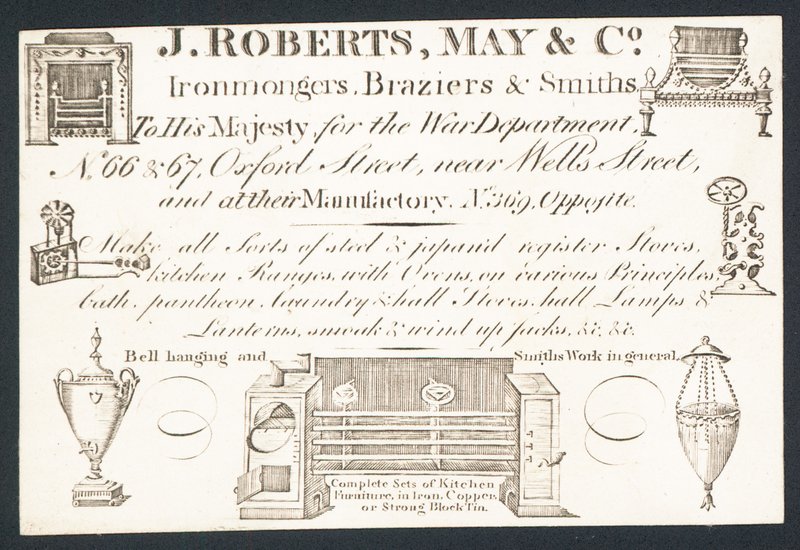 J. ROBERTS, MAY & Co.
Ironmongers, Braziers & Smiths
To His Majesty, for the War Department,
No. 66 & 67, Oxford Street, near Wells Street,
and at their Manufactory, No. 369, Opposite.
Make all Sorts of steel & japan'd register Stoves,
kitchen Ranges, with Ovens, on various Principles,
bath, pantheon, laundry & hall Stoves, hall Lamps &
Lanterns, smoak & wind up Jacks, &c. &c.
Bell hanging and Smiths Work in general,
Complete Sets of Kitchen
Furniture, in Iron, Copper,
or Strong Block Tin.